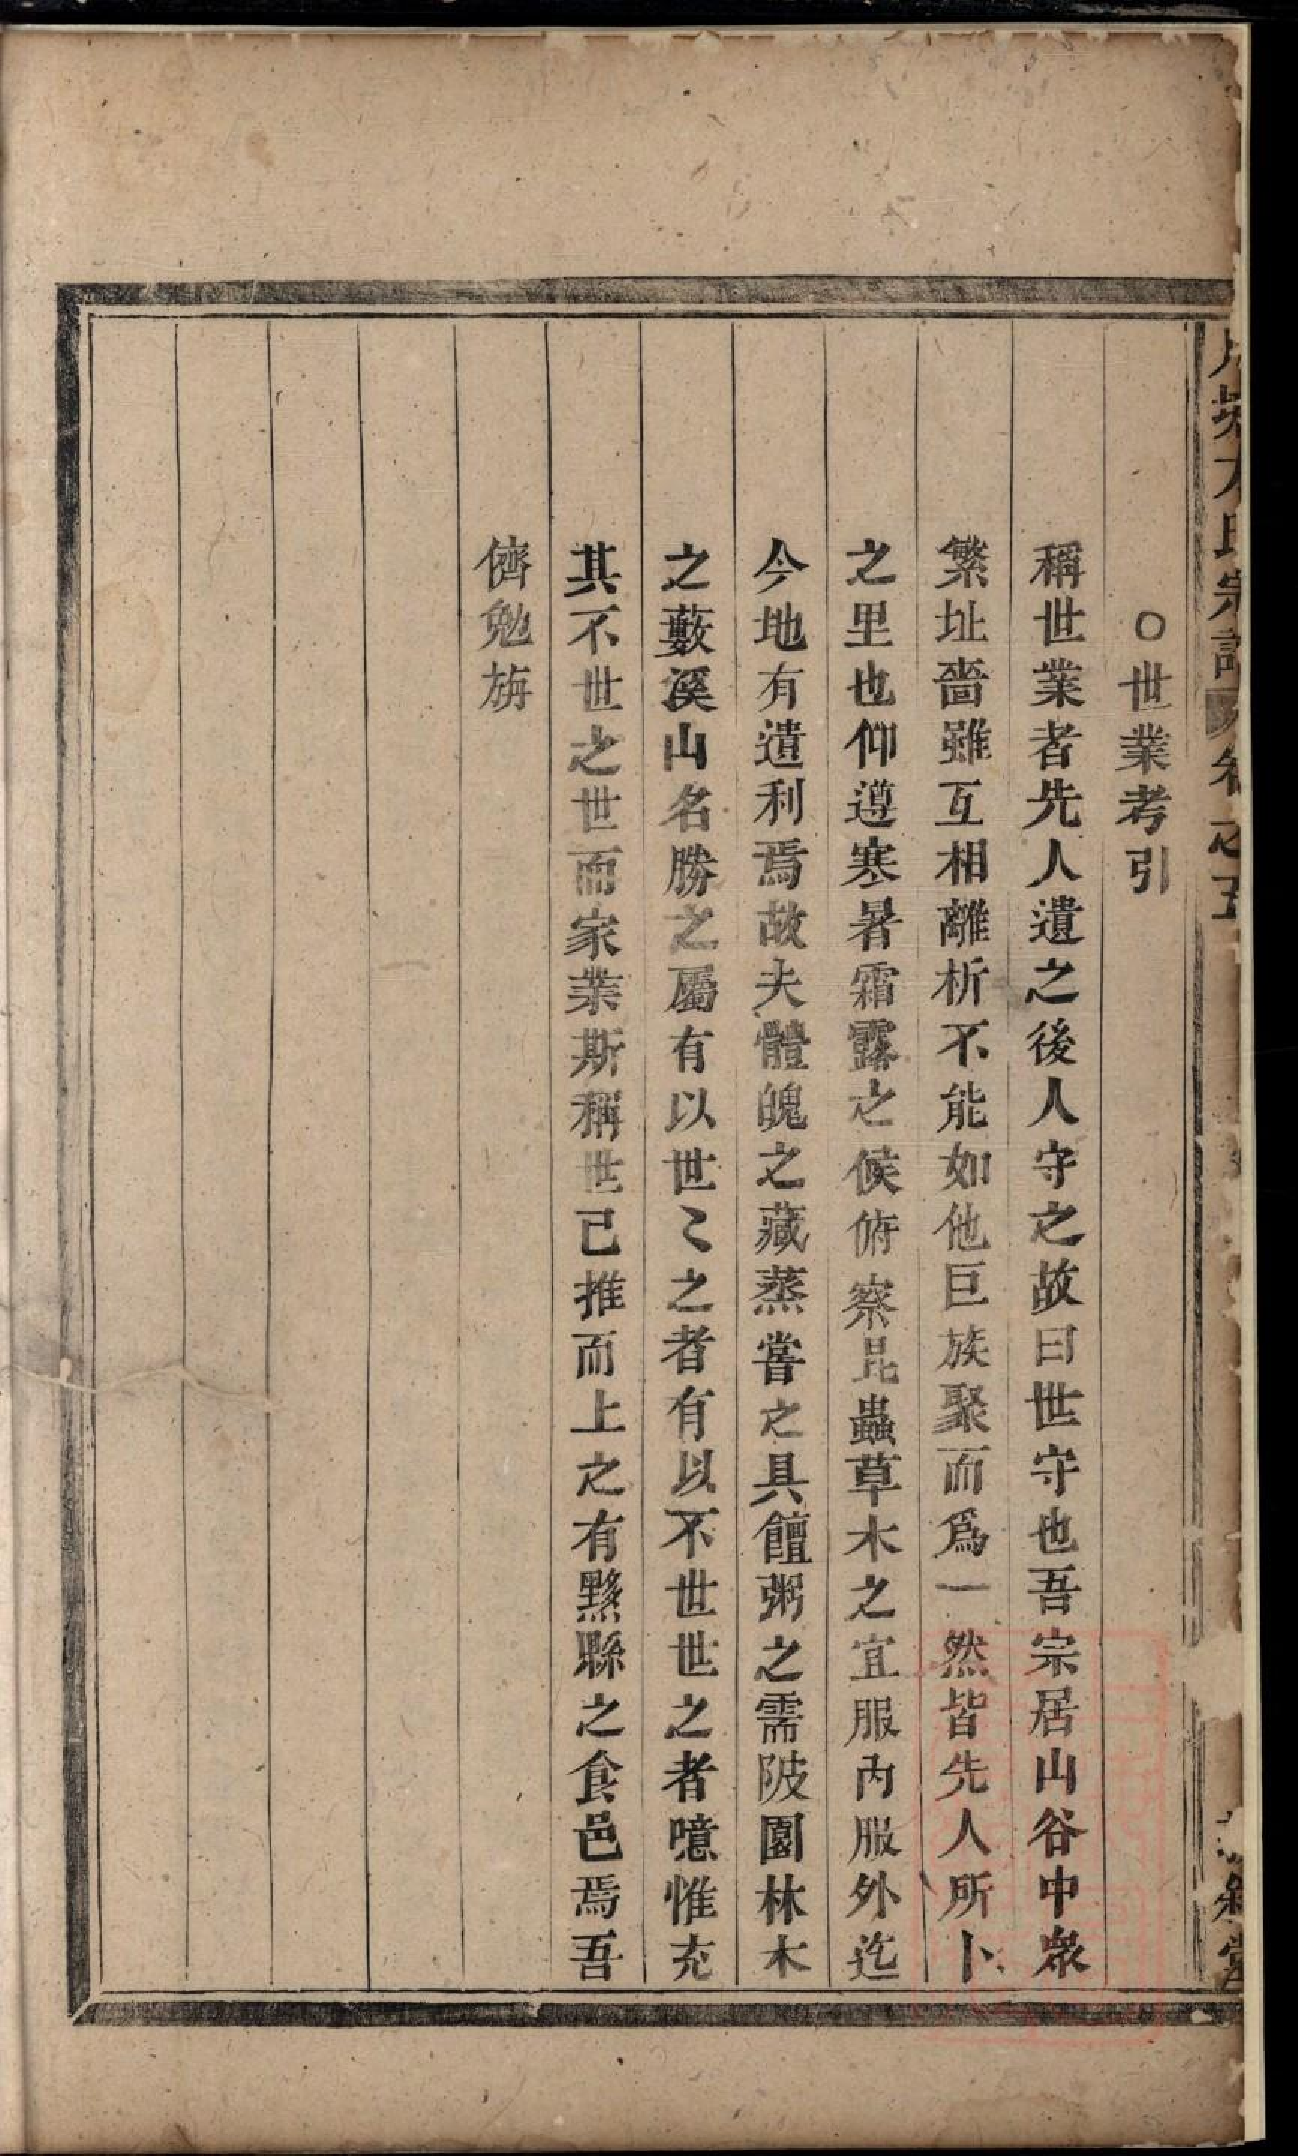 ○世業考引
稱世業者先人遺之後人守之故曰世守也吾宗居山谷中衆
繁址嗇雖互相離析不能如他巨族聚而爲一然皆先人所卜
之里也仰遵寒暑霜露之候俯察昆蟲草木之宜服內服外迄
今地有遺利焉故夫體魄之藏蒸嘗之具饘粥之需陂園林木
之藪溪山名勝之屬有以世〻之者有以不世世之者噫惟充
其不世之世而家業斯稱世已推而上之有黟縣之食邑焉吾
儕勉旃
氏宗譜 卷之五